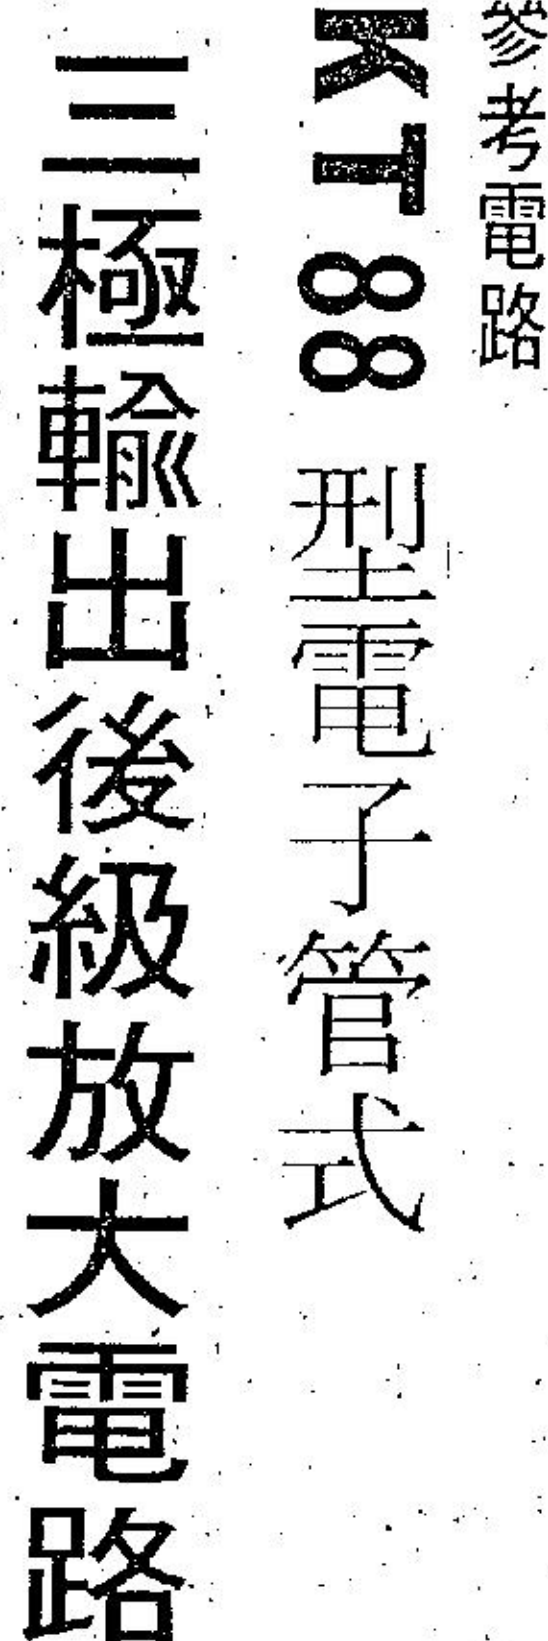 參考電路
KT88 型電子管式
三極輸出後級放大電路